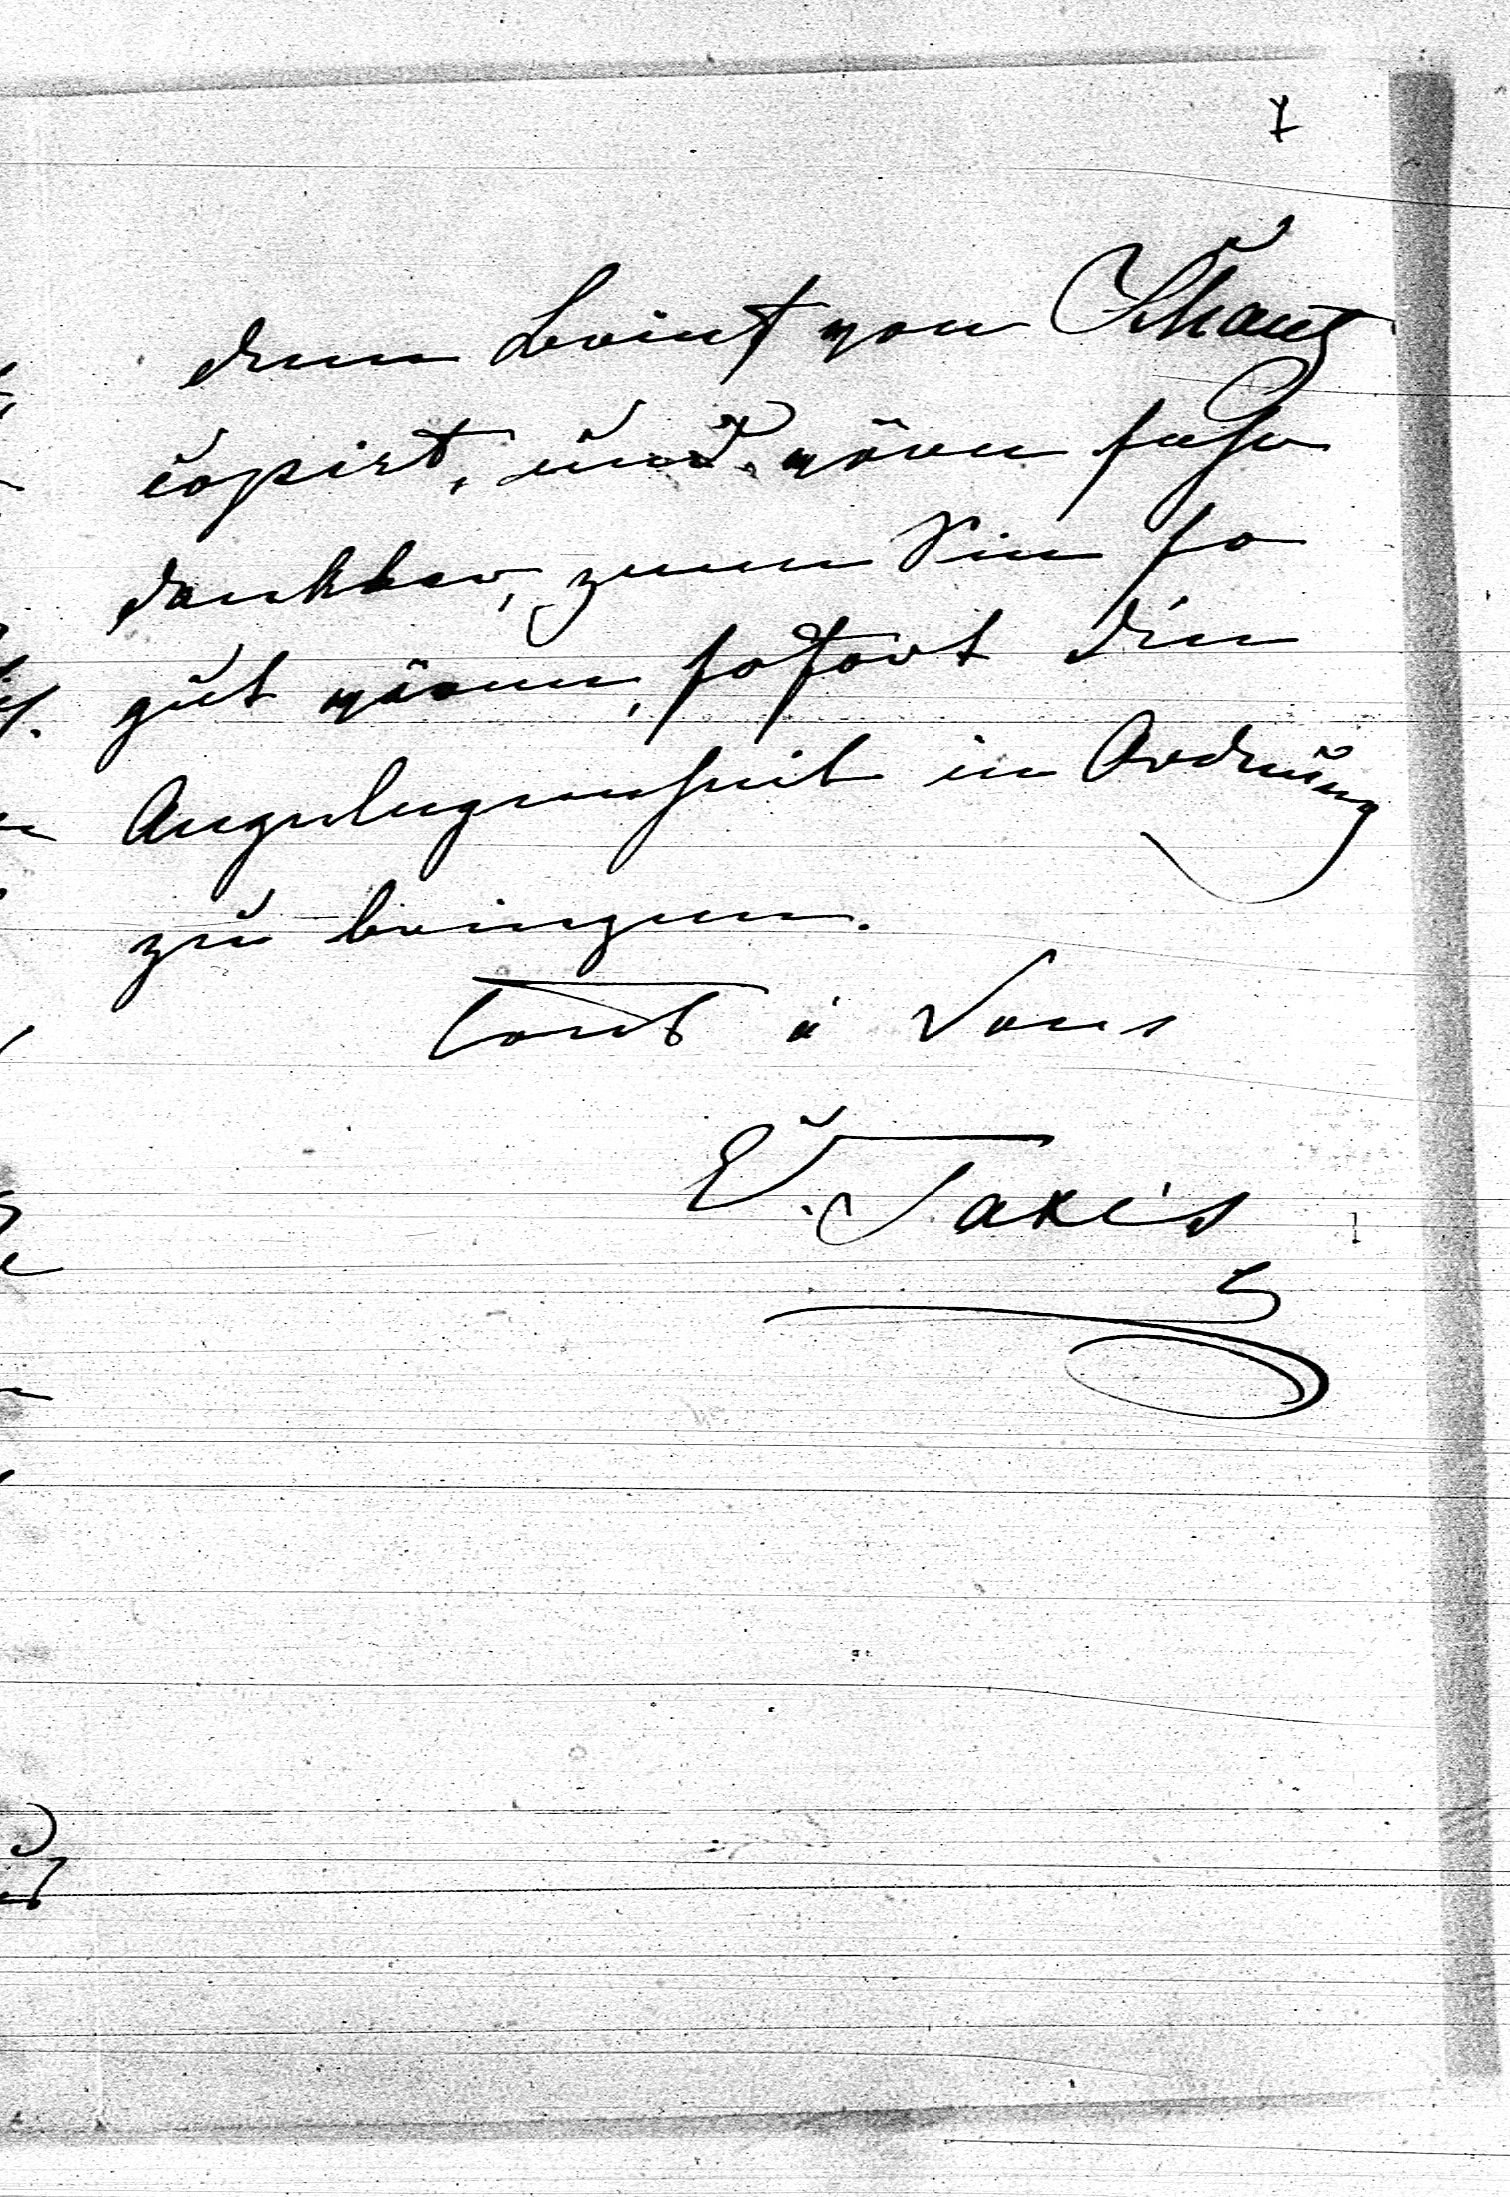 7
dem Brief von Schanz
copirt, und wären sehr
dankbar, wenn Sie so
gut wären, sofort die
Angelegenheit in Ordnung
zu bringen.
tout à vous
E. Taxis